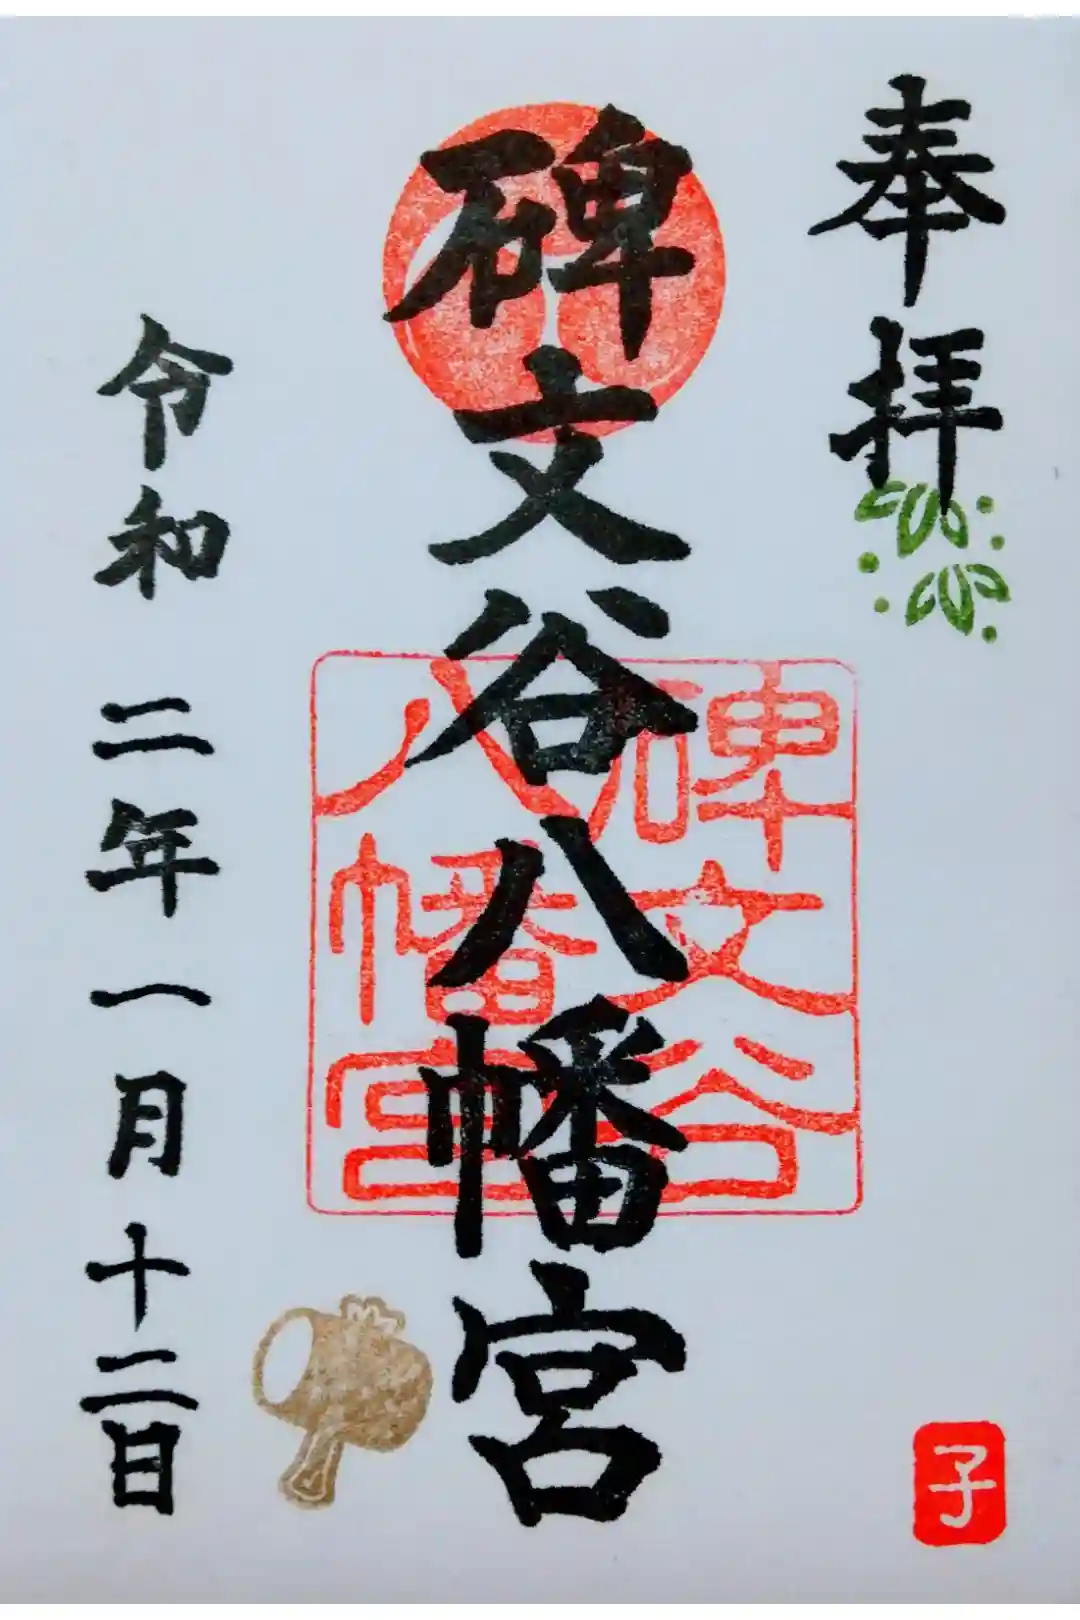 奉拝
碑文谷八幡宮
碑文谷
八幡宮
令和二年一月十二日
子